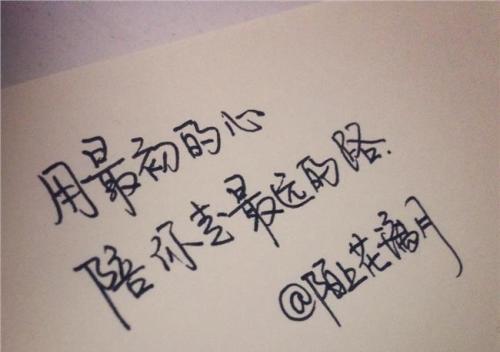 用最初的心
陪你走最远的路.
@陌上花漓月